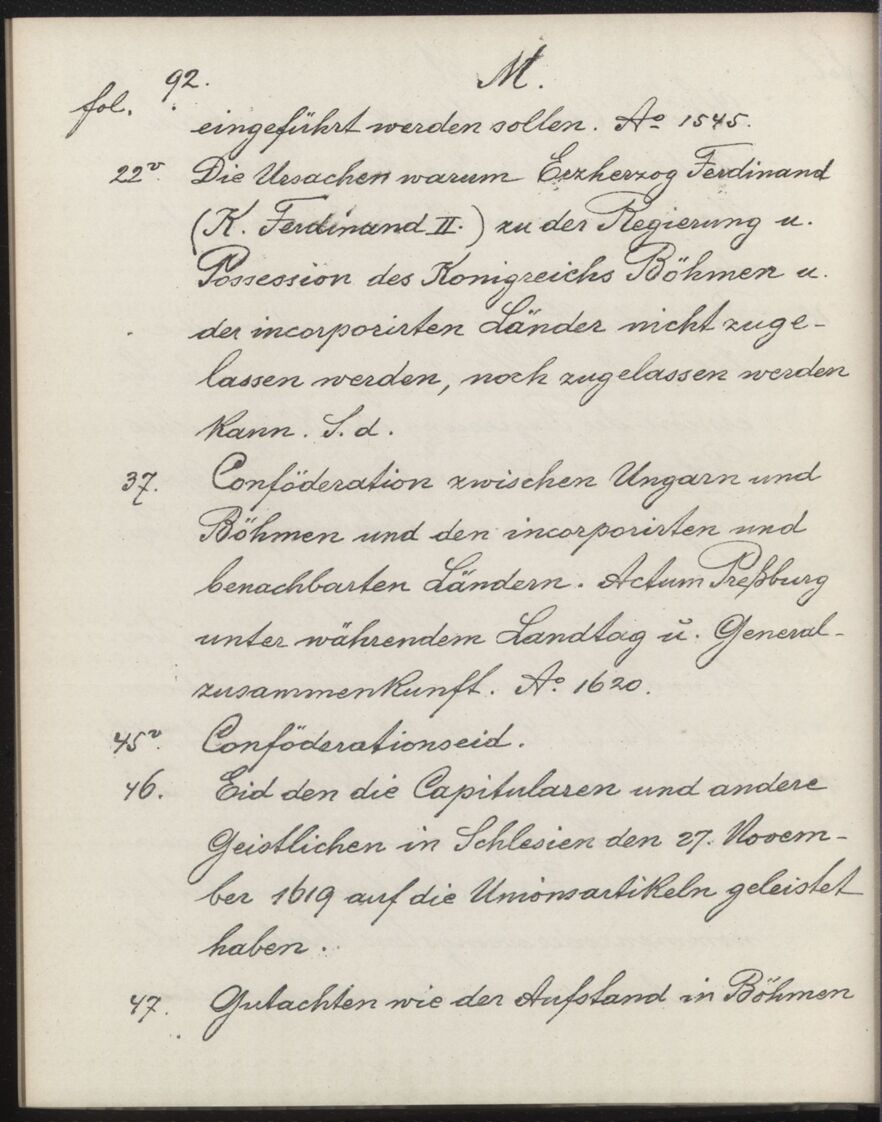 92. M.
fol. eingeführt werden sollen. Aº 1545.
22v. Die Ursachen warum Erzherzog Ferdinand
(K. Ferdinand II.) zu der Regierung u.
Possession des Konigreichs Böhmen u.
der incorporirten Länder nicht zuge-
lassen werden, noch zugelassen werden
kann. S. d.
37. Conföderation zwischen Ungarn und
Böhmen und den incorporirten und
benachbarten Ländern. Actum Preßburg
unter währendem Landtag u. General-
zusammenkunft. Aº 1620.
45v. Conföderationseid.
46. Eid den die Capitularen und andere
Geistlichen in Schlesien den 27. Novem-
ber 1619 auf die Unionsartikeln geleistet
haben.
47. Gutachten wie der Aufstand in Böhmen